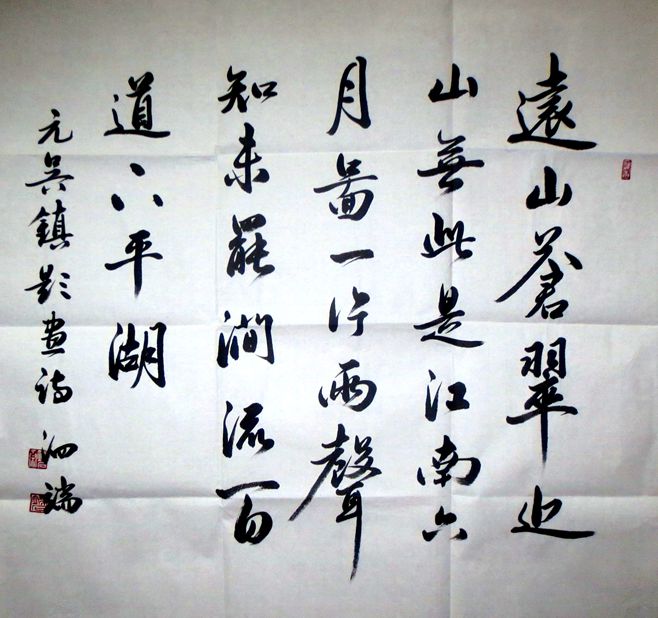 遠山蒼翠近
山無此是江南六
月圖一片雨聲
知未罷澗流百
道下平湖
元吳鎮題畫詩 泗端